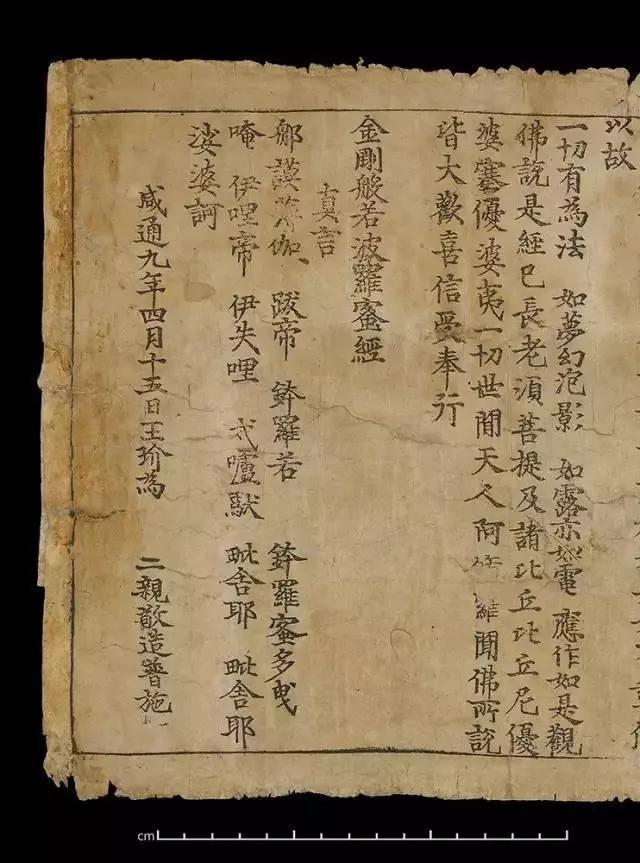 以故
一切有為法　如夢幻泡影　如露亦如電　應作如是觀
佛說是經已長老湏菩提及諸比丘比丘尼優
婆塞優婆夷一切世間天人阿　羅聞佛所說
皆大歡喜信受奉行
金剛般若波羅蜜經
真言
那謨　伽　跋帝　鉢羅若　鉢羅蜜多曳
唵　伊哩帝　伊失哩　戍嚧馱　毗舍耶　毗舍耶
娑婆訶
咸通九年四月十五日王玠為　二親敬造普施
cm